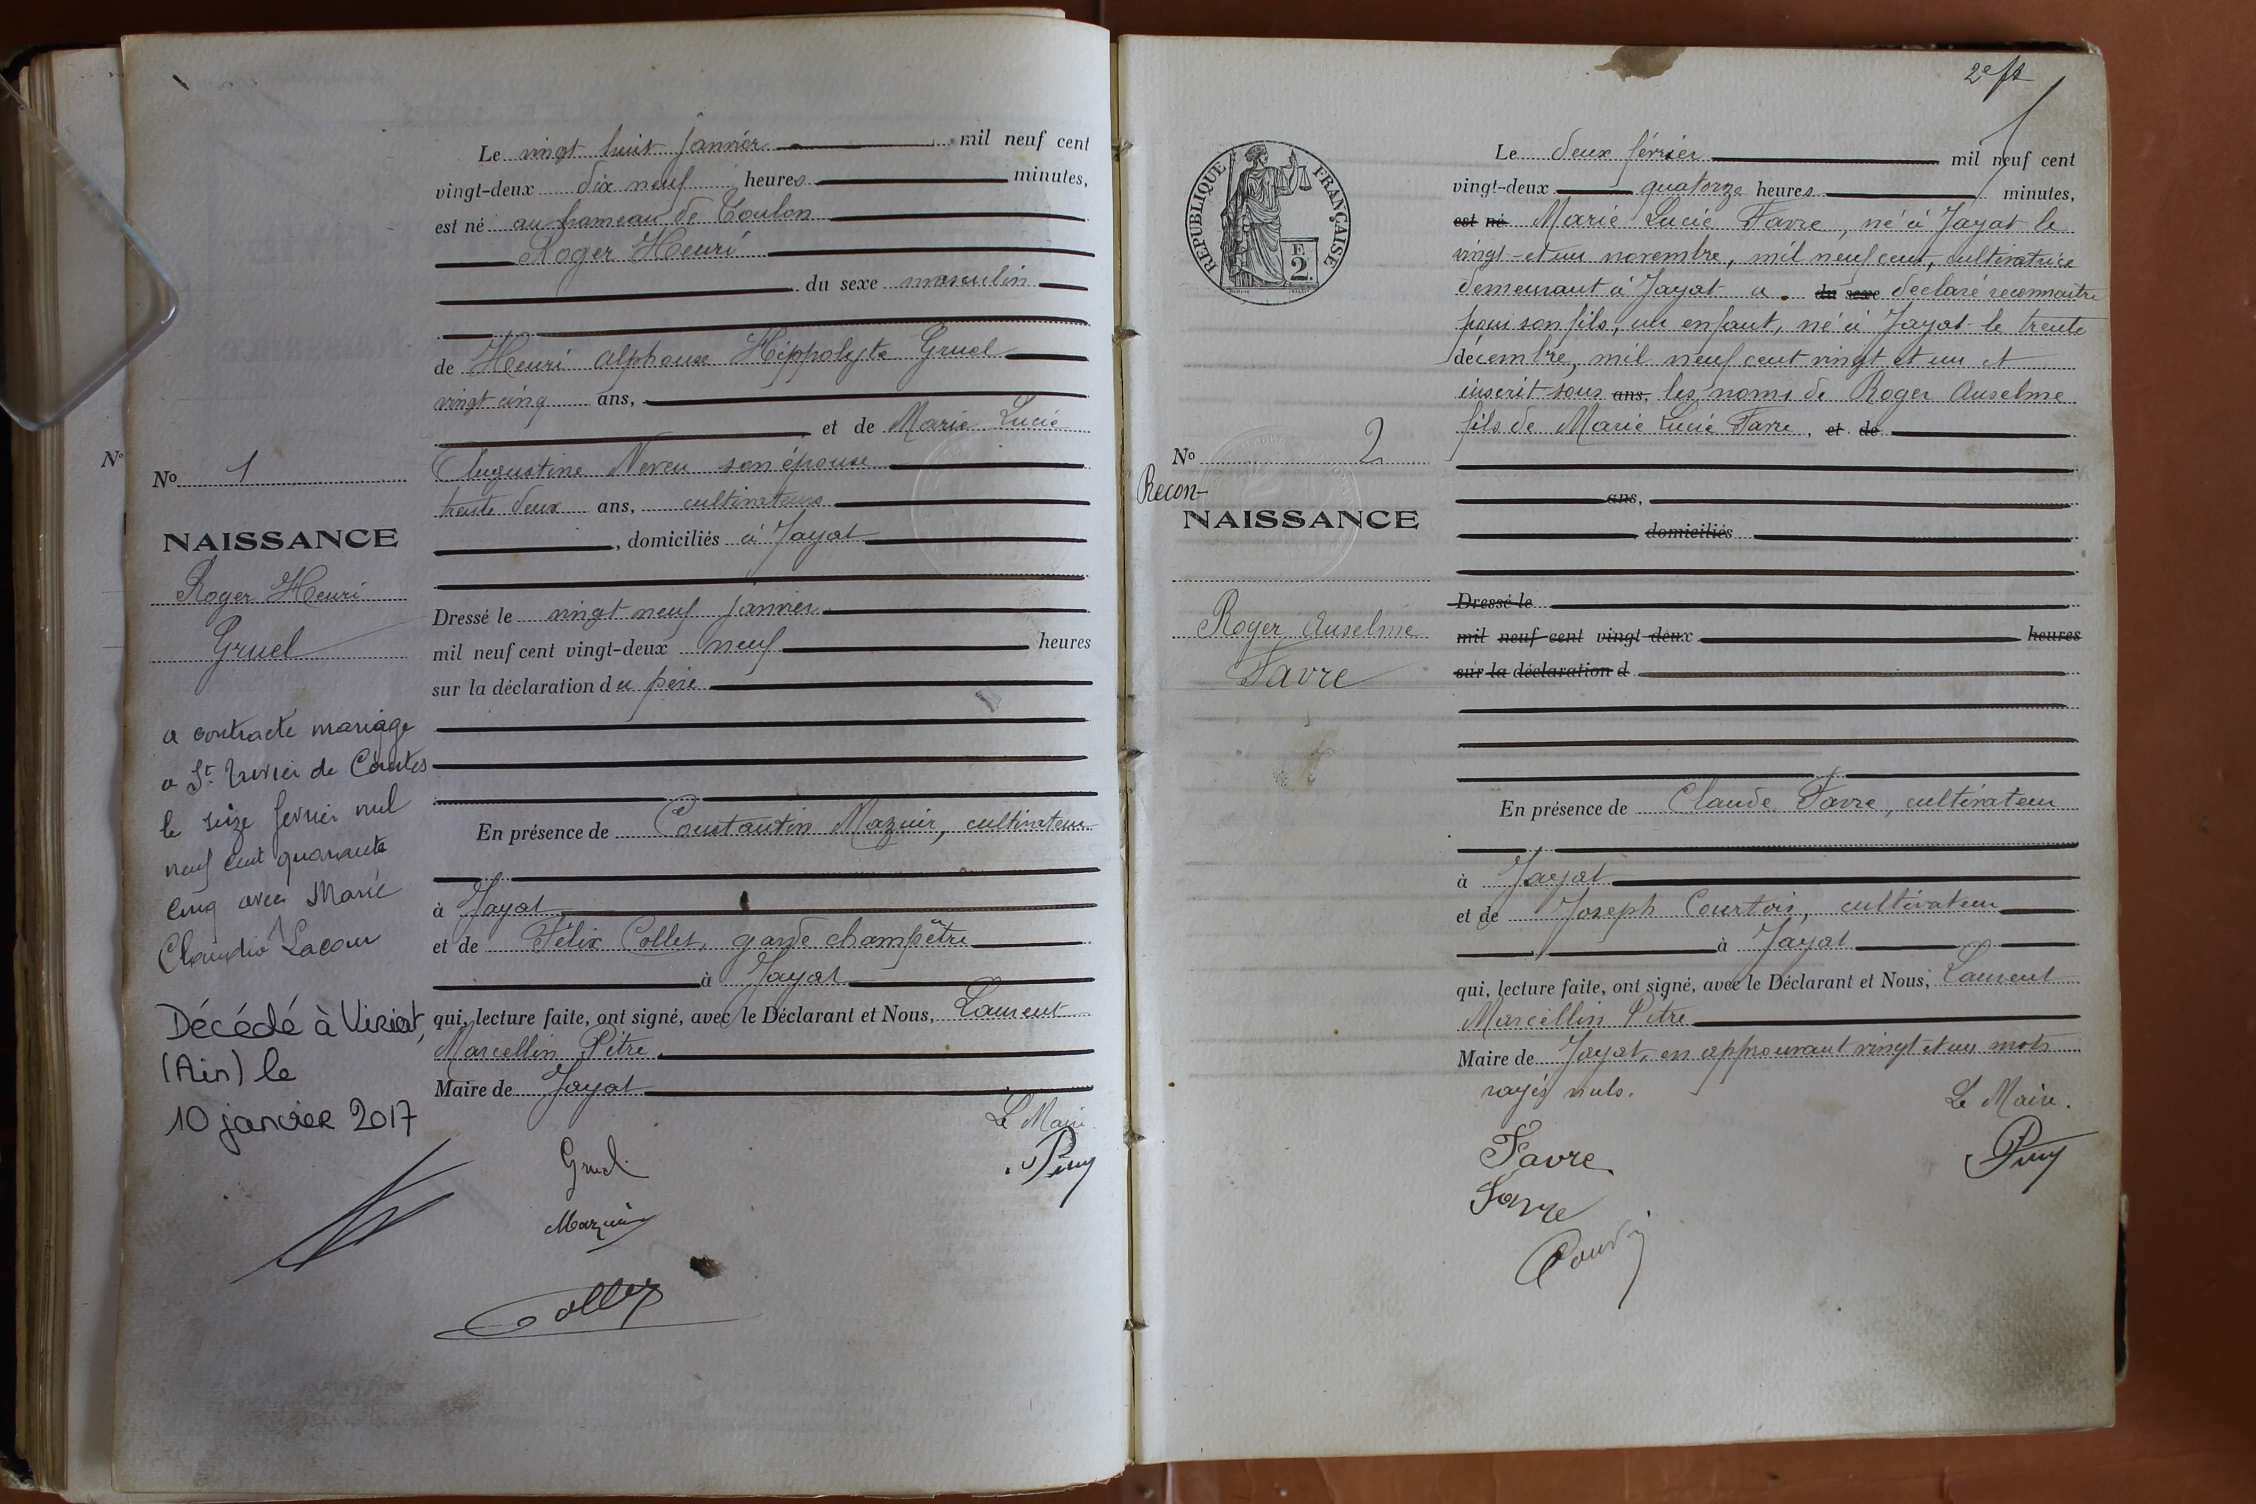 Le vingt huit janvier mil neuf cent
vingt-deux dix neuf heures minutes,
est né au hameau de Toulon
Roger Henri
du sexe masculin
de Henri Alphonse Hippolyte Gruel
vingt cinq ans,
et de Marie Lucie
Augustine Neveu son épouse
trente deux ans, cultivateurs
, domiciliés à Jayat
Dressé le vingt neuf janvier
mil neuf cent vingt-deux neuf heures
sur la déclaration du père
En présence de Constantin Mazuir, cultivateur
à Jayat
et de Félix Collet, garde champêtre
à Jayat
qui, lecture faite, ont signé, avec le Déclarant et Nous, Laurent
Marcellin Pitre
Maire de Jayat
Le Maire
Gruel
Mazuir
Collet
No
No 1
NAISSANCE
Roger Henri
Gruel
a contracté mariage
a St Trivier de Courtes
le seize fevrier mil
neuf cent quarante
cinq avec Marie
Claudia Lacour
Décédé à Viriat,
(Ain) le
10 janvier 2017
RÉPUBLIQUE FRANÇAISE
E
2
No 2
Recon-
NAISSANCE
Roger Anselme
Favre
Le deux février mil neuf cent
vingt-deux quatorze heures minutes,
est né Marie Lucie Favre, né à Jayat le
vingt-et un novembre, mil neuf cent, cultivatrice
demeurant à Jayat a du sexe déclaré reconnaitre
pour son fils, un enfant, né à Jayat le trente
décembre, mil neuf cent vingt et un et
inscrit sous ans, les noms de Roger Anselme
fils de Marie Lucie Favre, et de
ans,
domiciliés
Dressé le
mil neuf cent vingt-deux heures
sur la déclaration d
En présence de Claude Favre, cultivateur
à Jayat
et de Joseph Courtois, cultivateur
à Jayat
qui, lecture faite, ont signé, avec le Déclarant et Nous, Laurent
Marcellin Pitre
Maire de Jayat, en approuvant vingt et un mots
rayés nuls.
Le Maire.
Favre
Favre